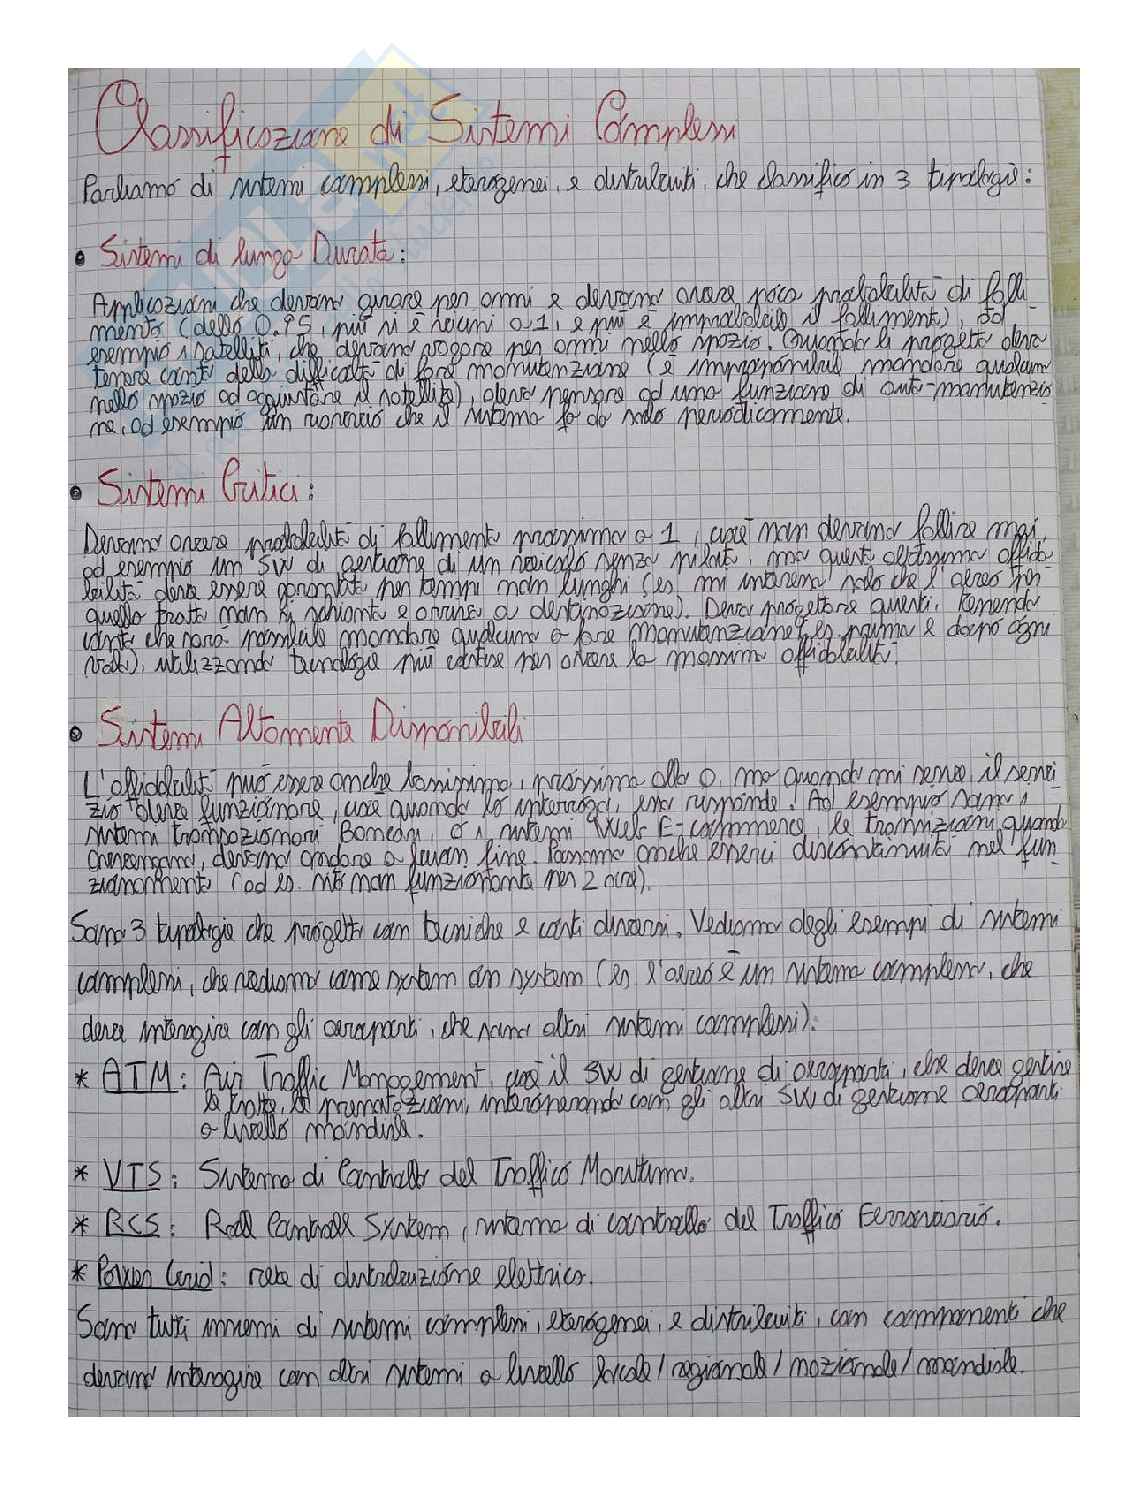 Classificazione di Sistemi Complessi
Parliamo di sistemi complessi, eterogenei, e distribuiti, che classifico in 3 tipologie:
• Sistemi di lunga Durata:
Applicazioni che devono girare per anni e devono avere poca probabilità di falli-
mento (dello 0.95, più si è vicini a 1, e più è improbabile il fallimento), ad
esempio i satelliti che devono vagare per anni nello spazio. Quando li progetto devo
tenere conto della difficoltà di fare manutenzione (è improponibile mandare qualcuno
nello spazio ad aggiustare il satellite), devo pensare ad una funzione di auto-manutenzio
ne, ad esempio un riavvio che il sistema fa da solo periodicamente.
• Sistemi Critici:
Devono avere probabilità di fallimento prossima a 1, cioè non devono fallire mai,
ad esempio un SW di gestione di un veicolo senza pilota, ma questa altissima affida-
bilità deve essere garantita per tempi non lunghi (es. mi interessa solo che l'aereo per
quella tratta non si schianti e arrivi a destinazione). Devo progettare questi, tenendo
conto che sarà possibile mandare qualcuno a fare manutenzione (es prima e dopo ogni
volo), utilizzando tecnologie più costose per avere la massima affidabilità.
• Sistemi Altamente Disponibili
L'affidabilità può essere anche bassissima, prossima allo 0, ma quando mi serve, il servi
zio deve funzionare, cioè quando lo interrogo, esso risponde. Ad esempio sono i
sistemi transazionari Bancari, o i sistemi Web E-commerce, le transazioni quando
avvengono, devono andare a buon fine. Possono anche esserci discontinuità nel fun
zionamento (ad es. sito non funzionante per 2 ore).
Sono 3 tipologie che progetto con tecniche e costi diversi. Vediamo degli esempi di sistemi
complessi, che vediamo come system on system (es. l'aereo è un sistema complesso, che
deve interagire con gli aeroporti, che sono altri sistemi complessi):
* ATM: Air Traffic Management, cioè il SW di gestione di aeroporti, che deve gestire
le tratte, le prenotazioni, interoperando con gli altri SW di gestione aeroporti
a livello mondiale.
* VTS: Sistema di Controllo del Traffico Marittimo.
* RCS: Rail Controll System, sistema di controllo del Traffico Ferroviario.
* Power Grid: rete di distribuzione elettrica.
Sono tutti insiemi di sistemi complessi, eterogenei, e distribuiti, con componenti che
devono interagire con altri sistemi a livello locale/regionale/nazionale/mondiale.